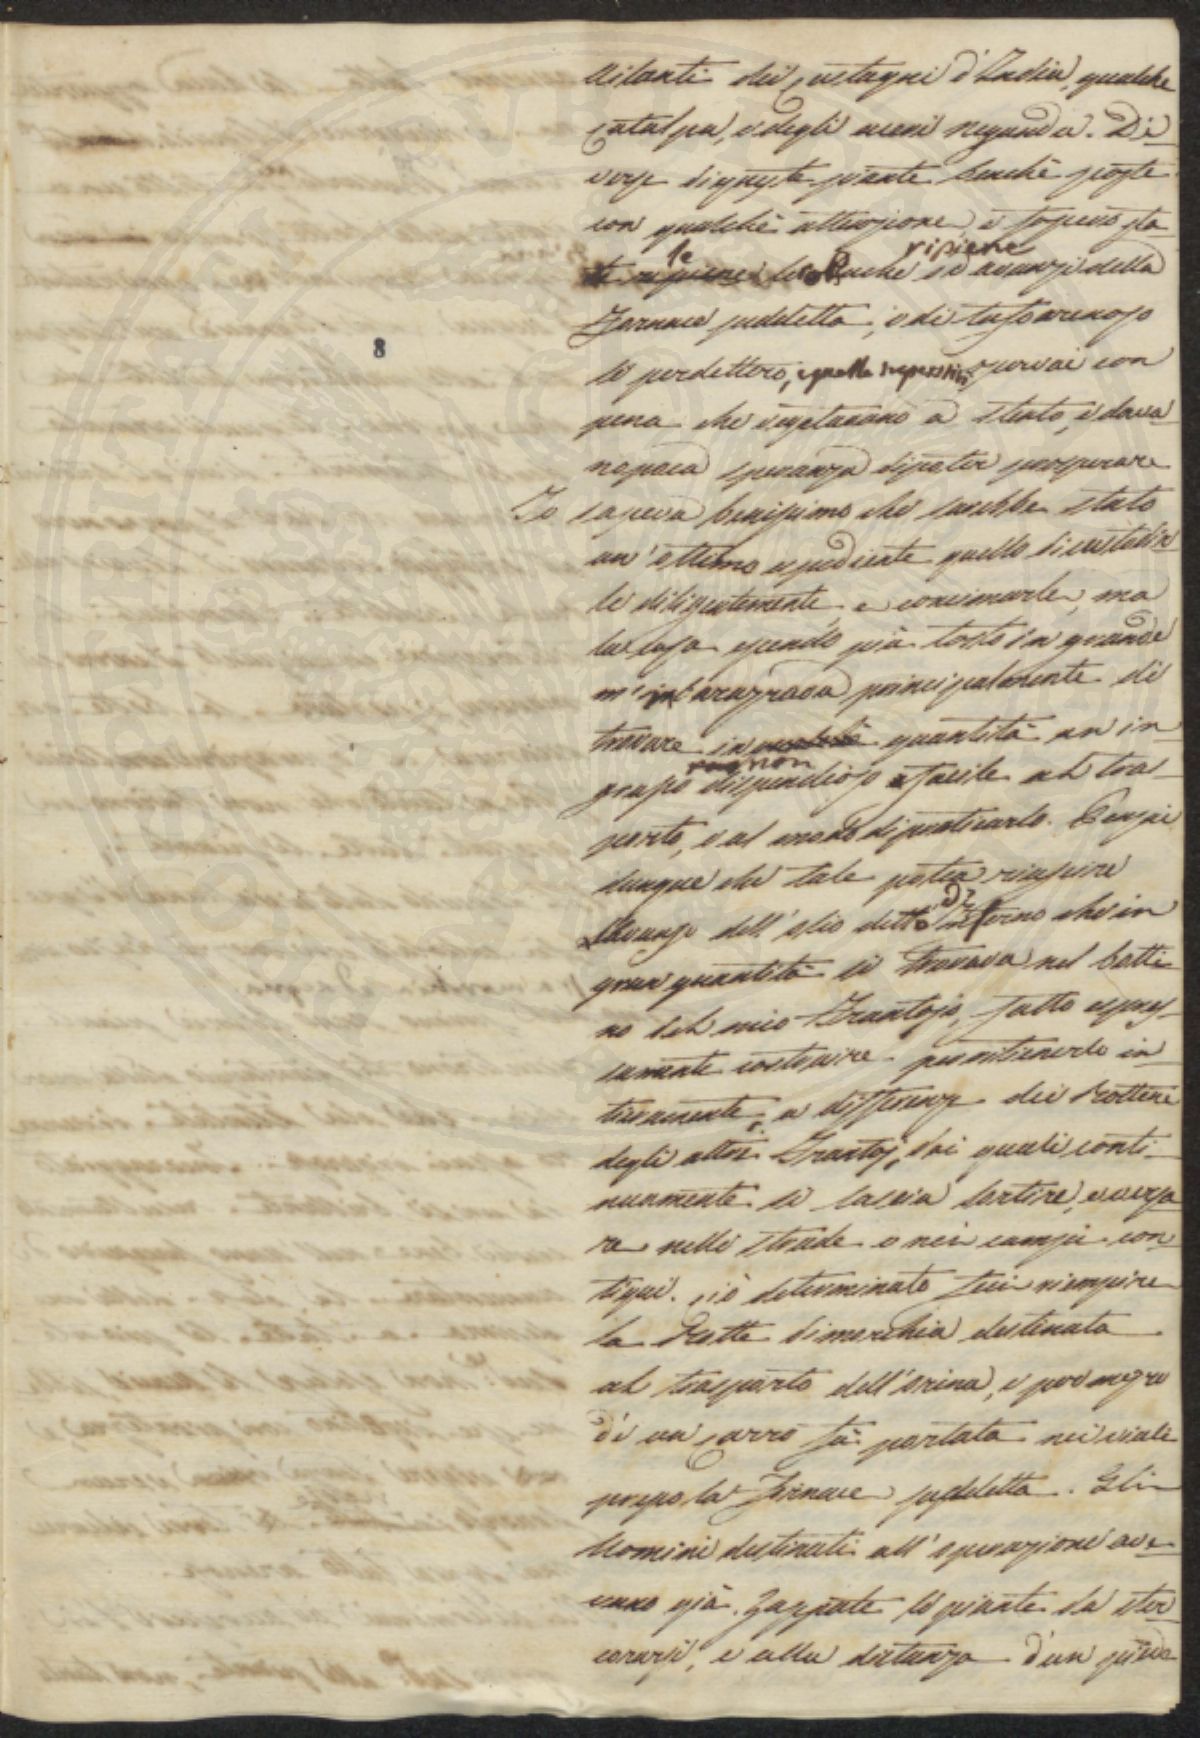 Ailanti dei Castagni d'India, qualche
Catalpa, e degli aceri negundi. Di
verse di queste piante benchè poste
con qualche attenzione, e fossero sta
te ripiene le buche di avanzi della
le ripiene
Fornace suddetta, e di tufo arenoso
si perdettero, e quelle superstiti osservai con
pena che vegetavano a stento, e dava
no poca speranza di poter prosperare
Io sapeva benissimo che sarebbe stato
un' ottimo espediente quello di custodir
le diligentemente, e concimarle, ma
la cosa essendo più tosto in grande
m'imbarazzava principalmente di
trovare in quantità un in
grasso dispendioso e facile al tras
non
porto, e al modo di praticarlo. Pensai
dunque che tale potea riuscire
l'avanzo dell' olio detto d'inferno che in
gran quantità si trovava nel botti
no del mio Frantojo, fatto espres
samente costruire per ritenerlo in
tieramente, a differenza dei Bottini
degli altri Frantoj, dai quali conti
nuamente si lascia sortire, e versa
re nelle strade o nei campi con
tigui. Ciò determinato feci riempire
la Botte di morchia destinata
al trasporto dell'orina, e per mezzo
di un carro fù portata nei viali
presso la Fornace suddetta. Gli
Uomini destinati all' operazione ave
vano già zappate le piante da ster
corarsi, e alla distanza d'un piede
8